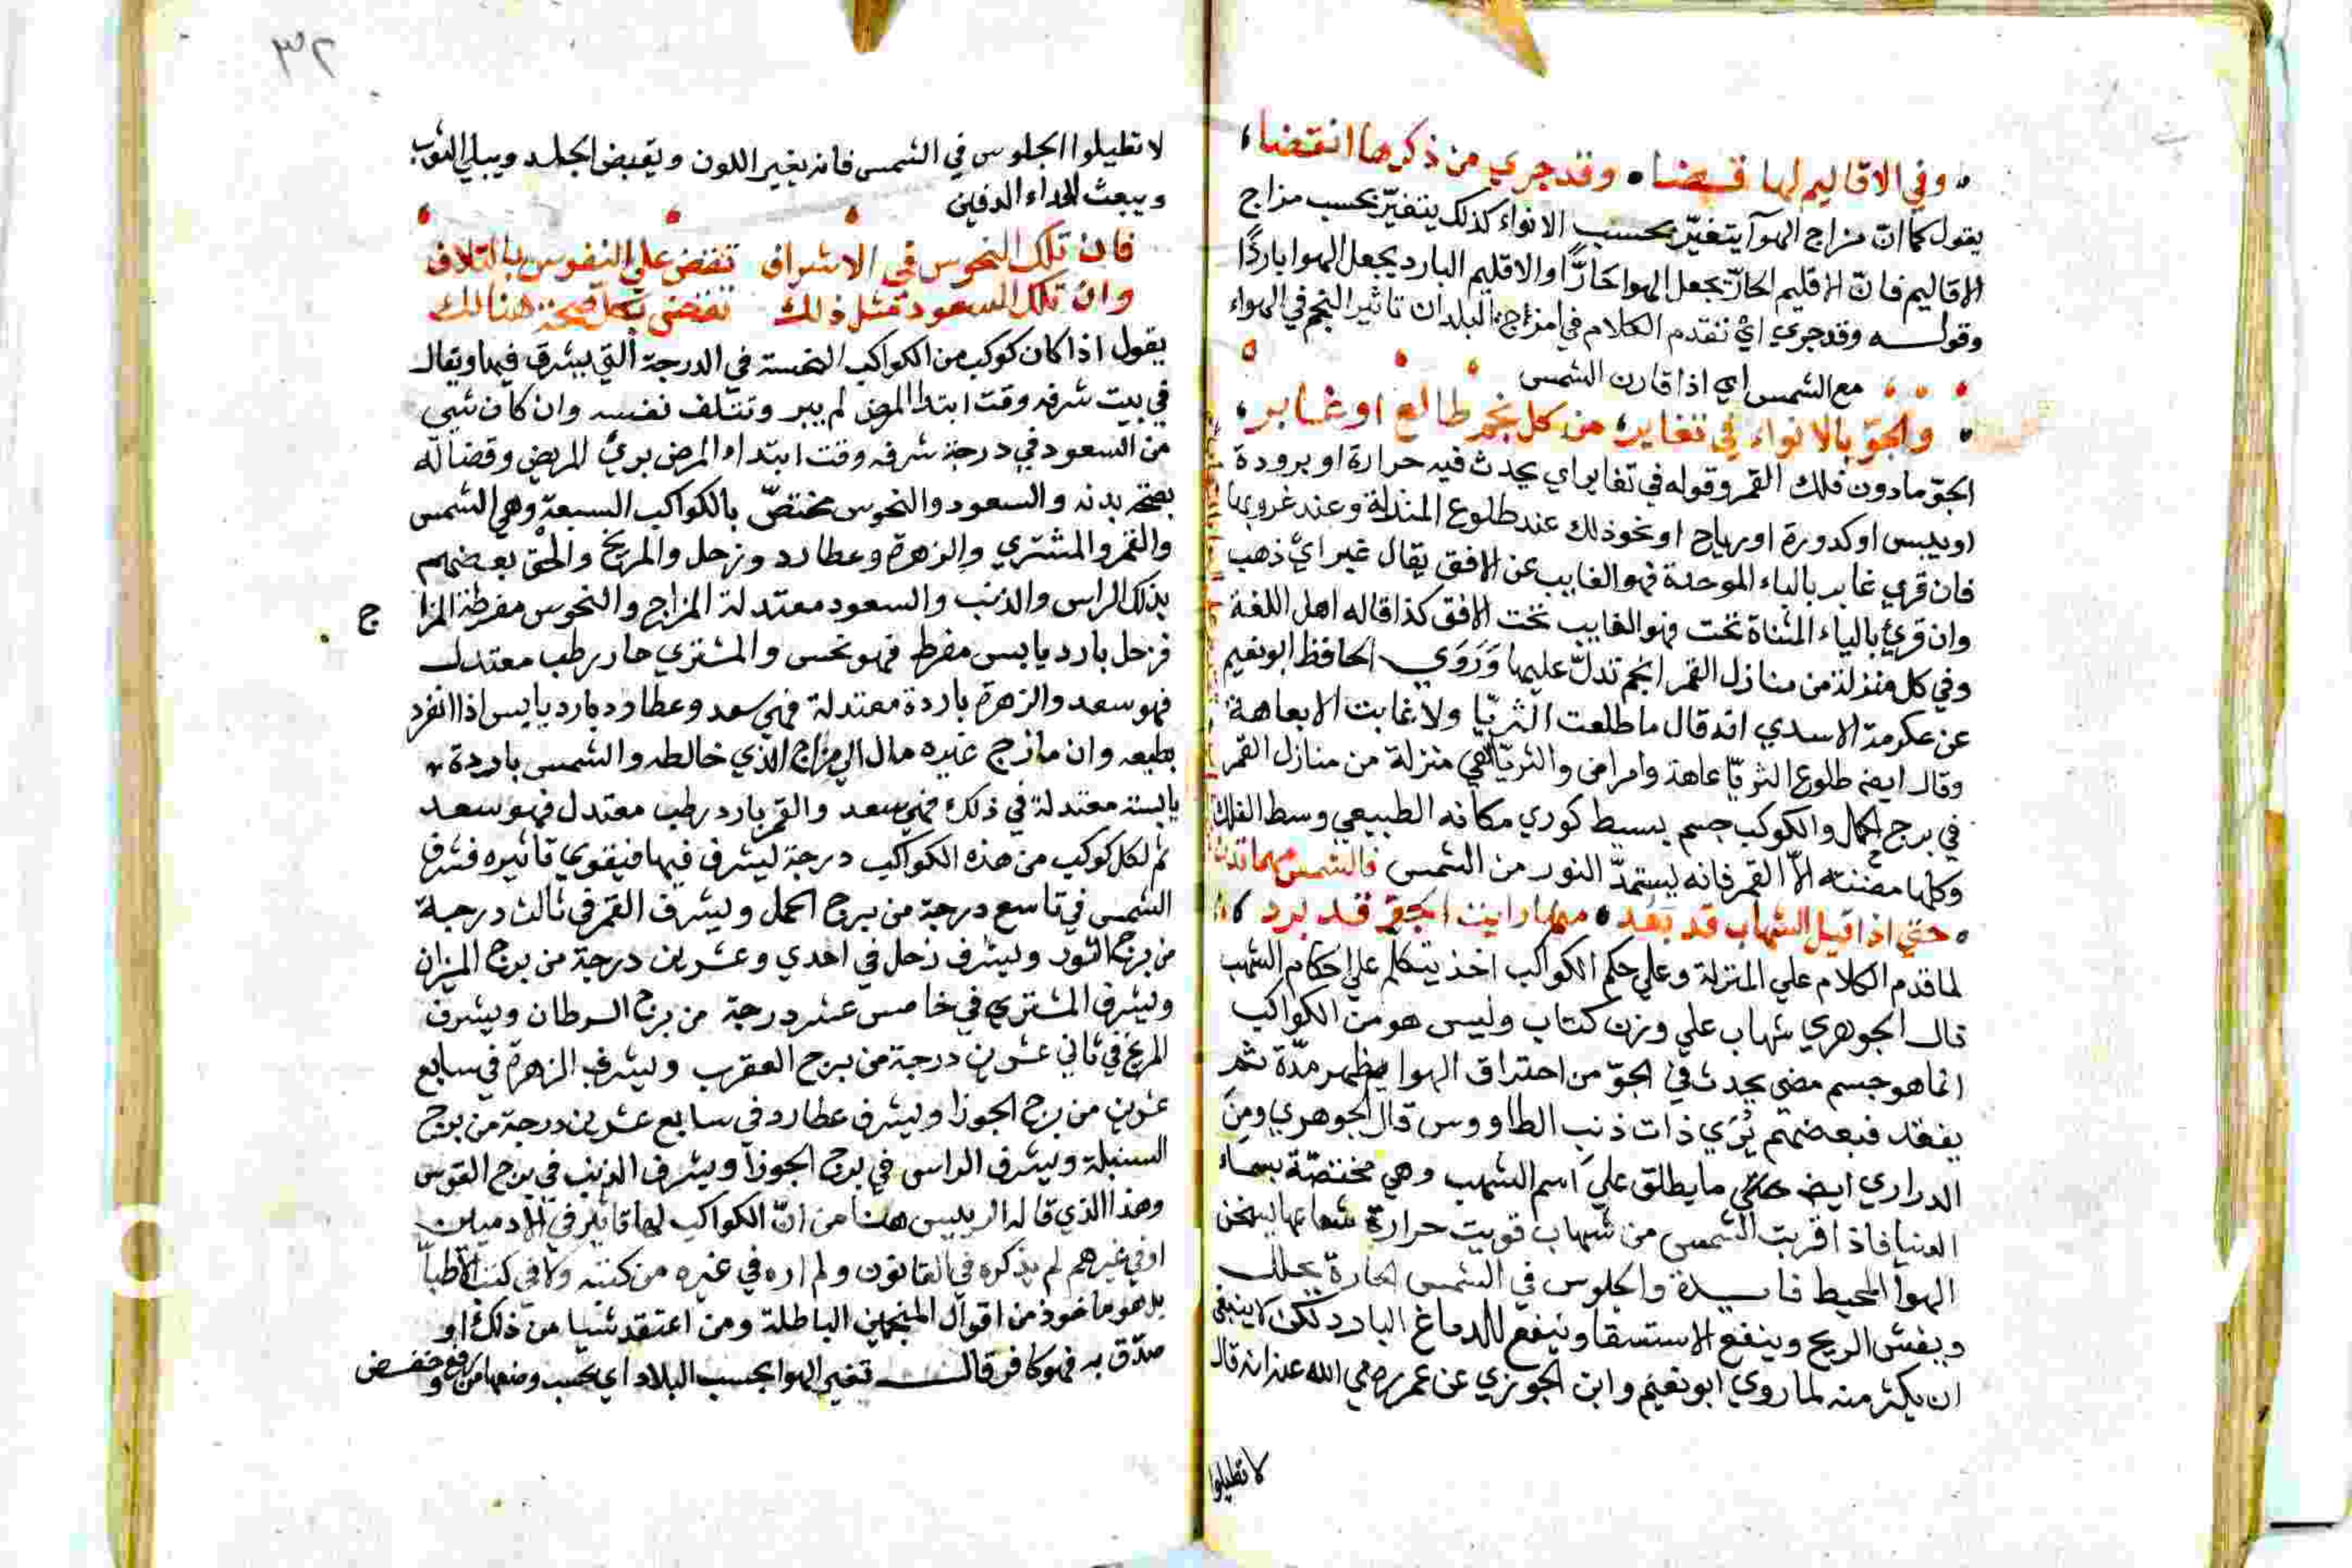 وفي الاقاليم لها قـضا • وقد جري من ذكرها انقضا
يقول كما انّ مزاج الهوآ يتغيّر بحسب الانواء كذلك يتغيّر بحسب مزاج
الاقاليم فانّ الاقليم الحارّ يجعل الهوا حَارًّا والاقليم البارد يجعل الهوا باردًا
وقولـه وقد جري ايْ تقدم الكلام في امزاجة البلدان تاثير النجم في الهواء
مع الشمس اي اذا قارن الشمس
• والجوّ بالانواء في تغاير • من كل نجم طالع او غابر
الجوّ مادون فلك القمر وقوله في تغاير اي يحدث فيه حرارة او برودة
او يبس او كدورة او رياح او نحو ذلك عند طلوع المنزلة وعند غروبها
فان قري غابر بالباء الموحدة فهو الغايب عن الافق يقال غبر ايْ ذهب
وان قرئ بالياء المثناة تحت فهو الغايب تحت الافق كذا قاله اهل اللغة
وفي كل منزلة من منازل القمر انجم تدلّ عليها وَرَوَي الحافظ ابو نعيم
عن عكرمة الاسدي انه قال ما طلعت الثريّا ولا غابت الا بعاهة
وقال ايضه طلوع الثريّا عاهة وامراض والثريّا هي منزلة من منازل القمر
في برج الحمل والكوكب جسم بسيط كوري مكانه الطبيعي وسط الفلك
وكلها مضيئه الّا القمر فانه يستمدّ النور من الشمس فالشمس مهما تدن
• حتي اذا قيل الشهاب قد بَعُد • مهما رايت الجوّ قد برد
لما قدم الكلام علي المنزلة وعلي حكم الكواكب اخذ يتكلم علي احكام الشهب
قال الجوهري شهاب علي وزن كتاب وليس هو من الكواكب
انما هو جسم مضي يحدث في الجوّ من احتراق الهوا يظهر مدّة ثم
يفقد فبعضهم يُرَي ذات ذنب الطاووس قال الجوهري ومن
الدراري ايضه ما يطلق علي اسم الشهب وهي مختصّة بسماء
الدنيا فاذا قربت الشمس من شهاب قويت حرارة شعاعها ليسخن
الهوآ المحيط فايـدة والجلوس في الشمس الحارة يحلل
ويفش الريح وينفع الاستسقا وينفع للدماغ البارد لكن لا ينبغي
ان يكثر منه لما روي ابو نعيم وابن الجوزي عن عمر رضي الله عنه انه قال
لا تطيلوا
٣٢
لا تطيلوا الجلوس في الشمس فانه يغير اللون ويقبض الجلد ويبلي الثوب
ويبعث الداء الدفين
فان تلك النحوس في الاشراف تقض علي النفوس بالتلاف
وان تكن السعود مثل ذلك تقضي بكل صحة هنالك
يقول اذا كان كوكب من الكواكب النحسة في الدرجة التي يشرق فيها ويقال
في بيت شرفه وقت ابتدا المرض لم يبر وتتلف نفسه وان كان شي
من السعود في درجة شرفه وقت ابتداء المرض بريْ المريض وقضا له
بصحة بدنه والسعود والنحوس مختصّ بالكواكب السبعة وهي الشمس
والقمر والمشتري والزهرة وعطارد وزحل والمريخ والحق بعضهم
بذلك الراس والذنب والسعود معتدلة المزاج والنحوس مفرطة المزا ج
فزحل بارد يابس مفرط فهو نحس والمشتري حار رطب معتدل
فهو سعد والزهرة باردة معتدلة فهي سعد وعطارد بارد يابس اذا انفرد
بطبعه وان مازج غيره مال الي مزاج الذي خالطه والشمس باردة
يابسة معتدلة في ذلك فهي سعد والقمر بارد رطب معتدل فهو سعد
ثم لكل كوكب من هذه الكواكب درجة ليشرف فيها فيقوي تاثيره فشرف
الشمس في تاسع درجة من برج الحمل ويشرف القمر في ثالث درجة
من برج الثور ويشرف زحل في احدي وعشرين درجة من برج الميزان
ويشرف المشتري في خامس عشر درجة من برج السرطان ويشرف
المريخ في ثاني عشرين درجة من برج العقرب ويشرف الزهرة في سابع
عشرين من برج الجوزا ويشرف عطارد في سابع عشرين درجة من برج
السنبلة ويشرف الراس في برج الجوزآ ويشرف الذنب في برج القوس
وهذا الذي قاله الرييس هنا من انّ الكواكب لها تاثير في الادميين
او في غيرهم لم يذكره في القانون ولم اره في غيره من كتبه ولا في كتب الاطبآ
بل هو ماخوذ من اقوال المنجمين الباطلة ومن اعتقد شيا من ذلك او
صدّق به فهو كافر قالـ تغير الهوا بحسب البلاد اي بحسب وضعها من رفع وخفض